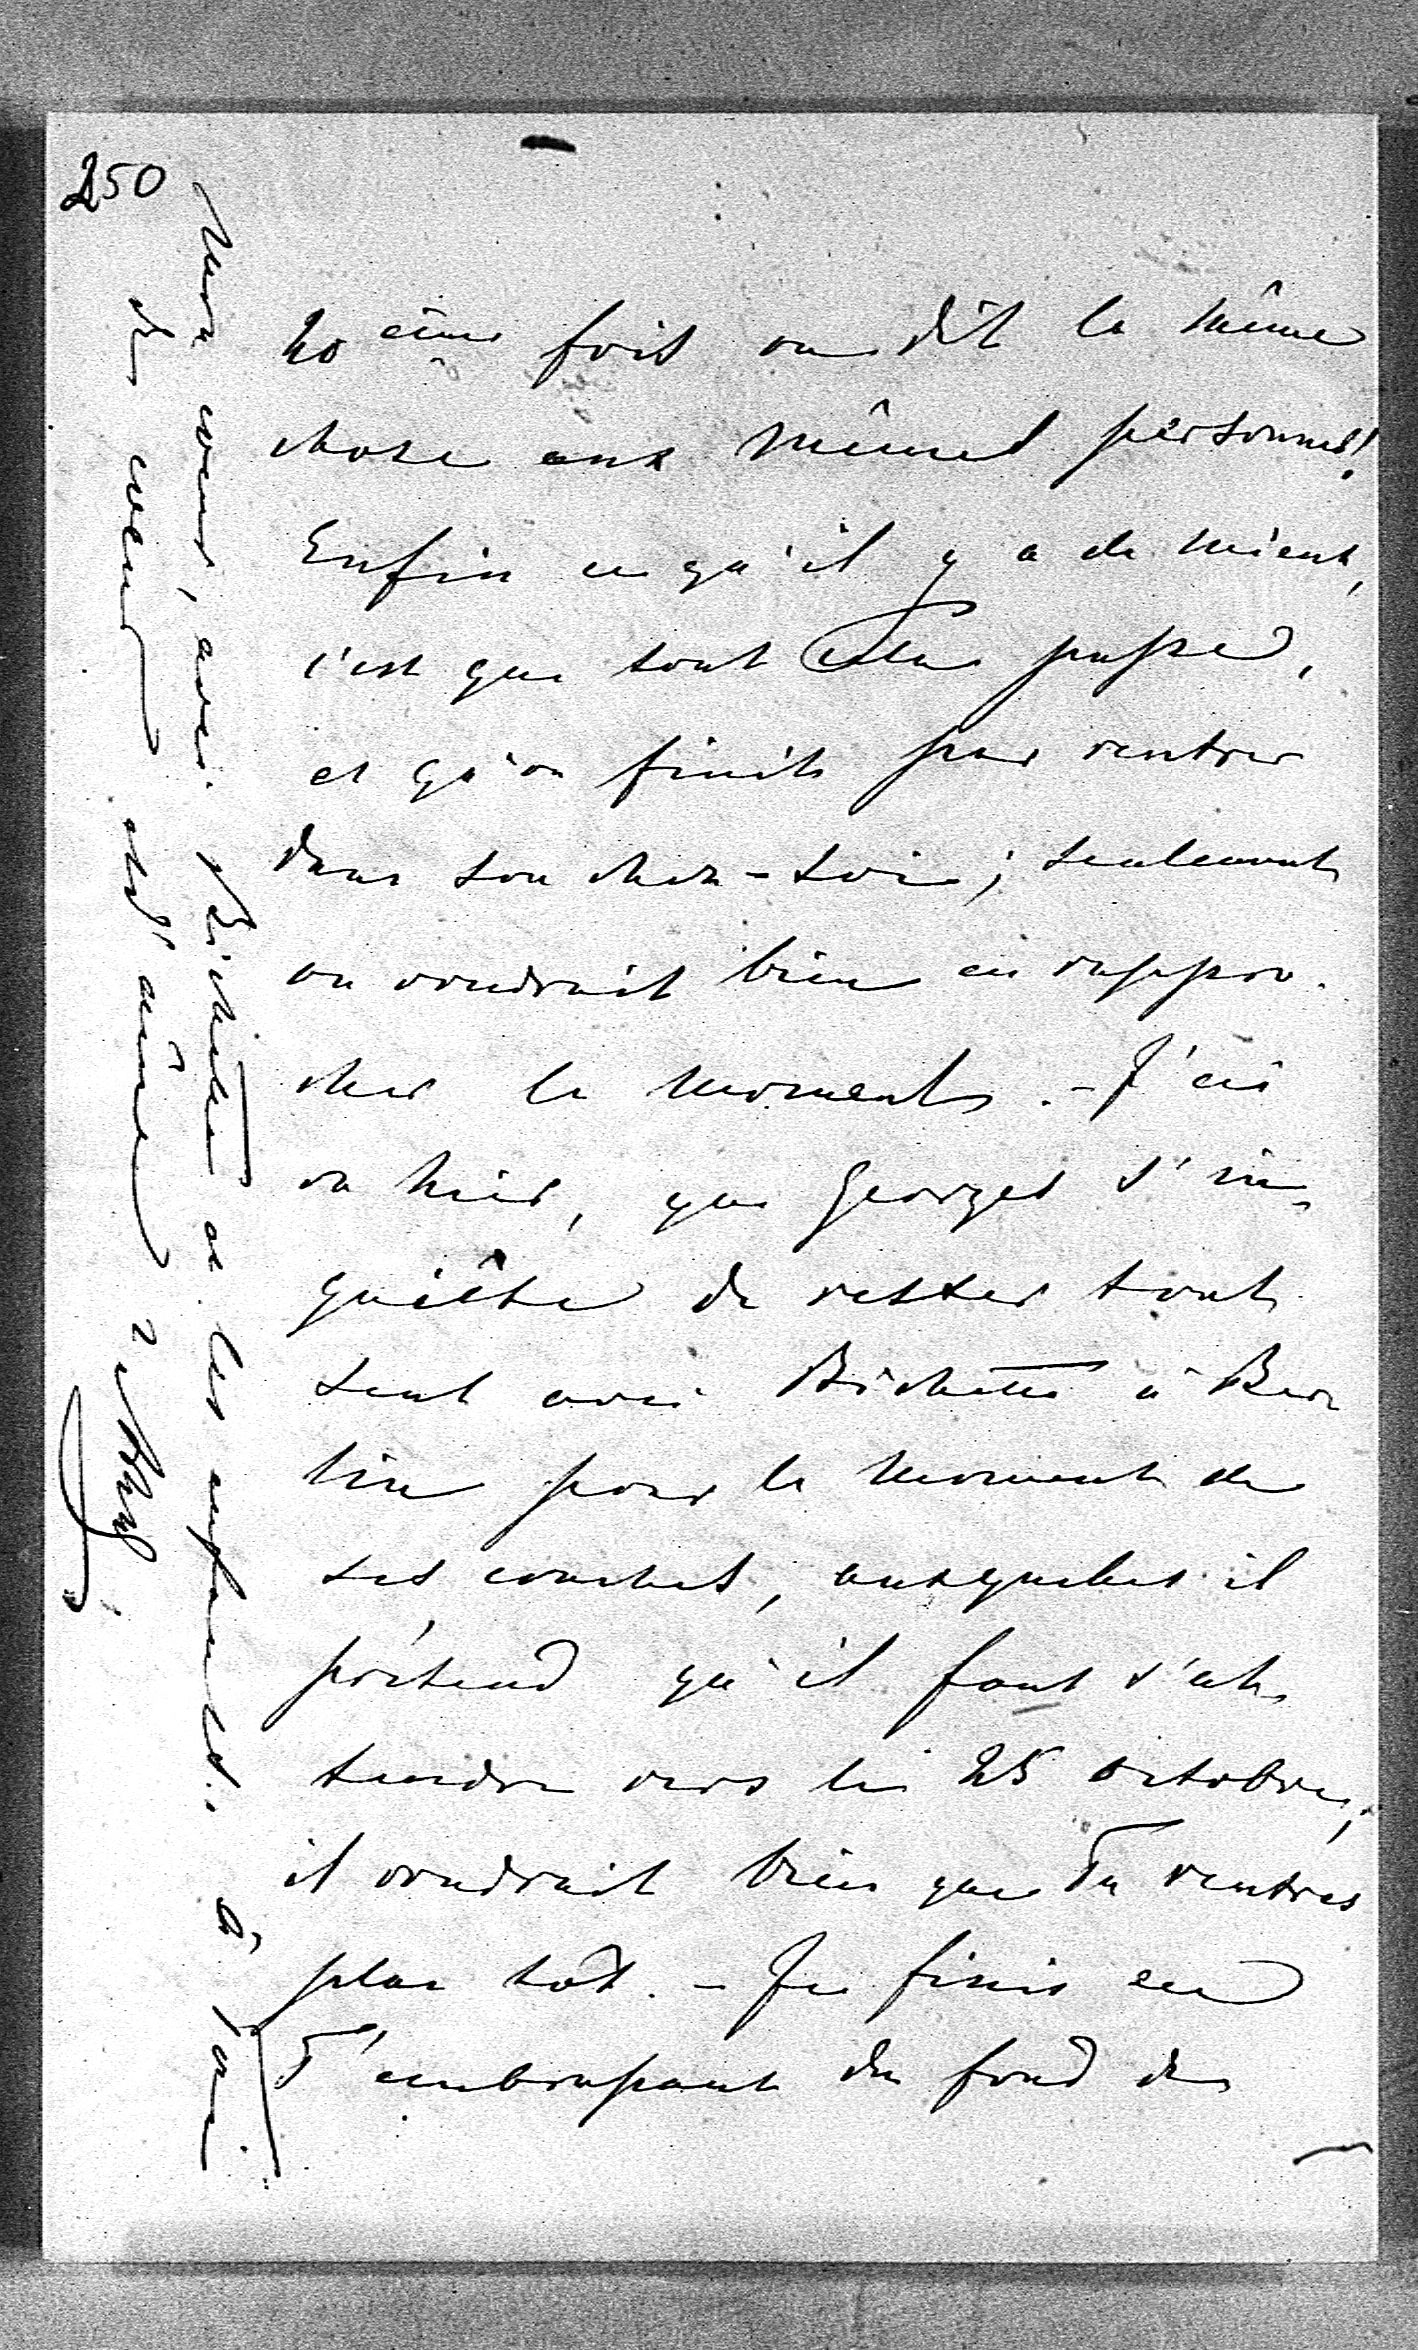 250
20ème fois on dit la même
chose aux mêmes personnes!
Enfin ce qu'il y a de mieux,
c'est que tout cela passe,
et qu'on finit par rentrer
dans son chez-soi; seulement
on voudrait bien en rappro-
cher le moment. - J'ai
vu hier, que Georges s'in-
quiète de rester tout
seul avec Bichette à Ber-
lin pour le moment de
ses couches, auxquelles il
prétend qu'il faut s'at-
tendre vers le 25 octobre;
il voudrait bien que Tu rentres
plus tôt. - Je finis en
T'embrassant du fond de
mon cœur, avec Bichette et les enfants. à Toi
de cœur et d'âme